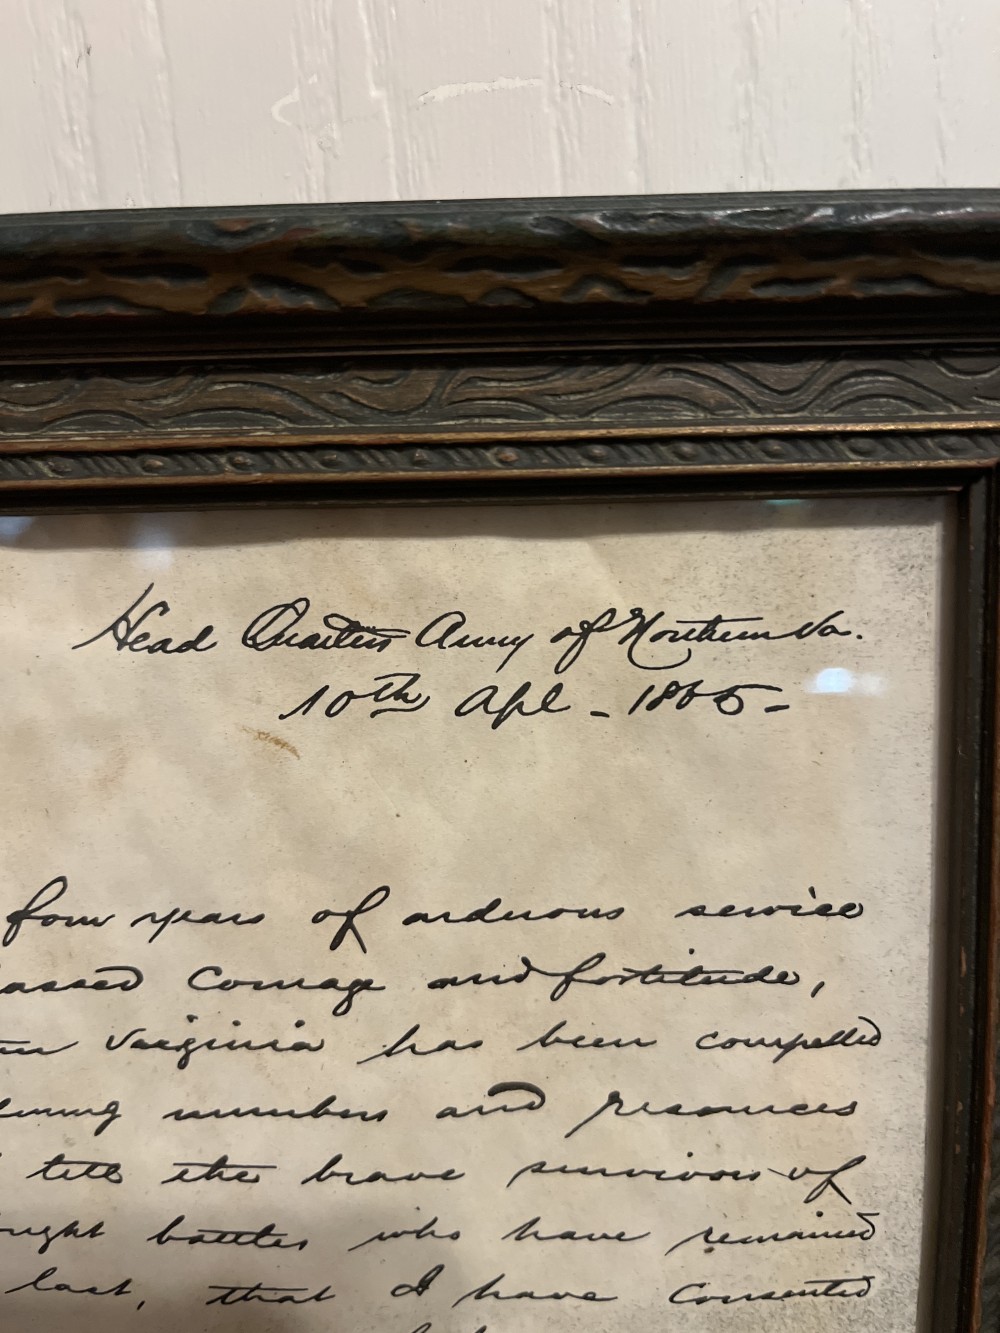 Head Quarters Army of Northern Va.
10th Apl - 1865 -
four years of arduous service
assed Courage and fortitude,
Virginia has been compelled
numbers and resources
tell the brave survivors of
ought battles who have remained
last, that I have Consented